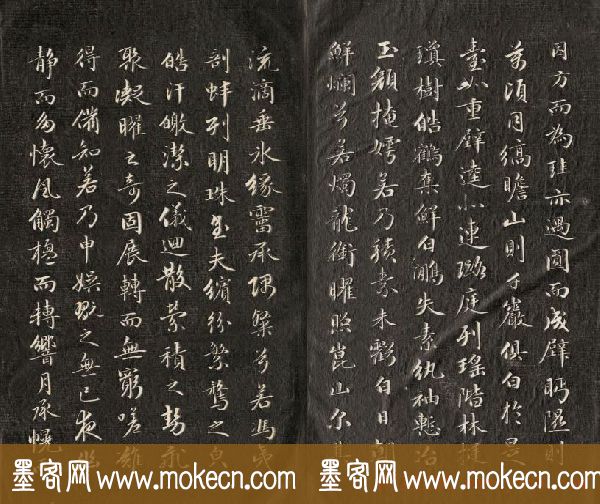 因方而為珪亦遇圓而成璧眄隰則
萬頃同縞瞻山則千巖俱白於是
臺如重璧逵似連璐庭列瑤階林挺
瓊樹皓鶴奪鮮白鷴失素紈袖慙冶
玉顏掩嫮若乃積素未虧白日朝
鮮爛兮若燭龍銜曜照崑山尔其
流滴垂冰緣霤承隅粲兮若馮夷
剖蚌列明珠至夫繽紛繁騖之皃
皓汗皦潔之儀迴散縈積之勢飛
聚凝曜之奇固展轉而無窮嗟難
得而備知若乃申娛翫之無已夜
靜而多懷風觸楹而轉響月承幌
墨客网 www.mokecn.com 墨客网 www.mokecn.com